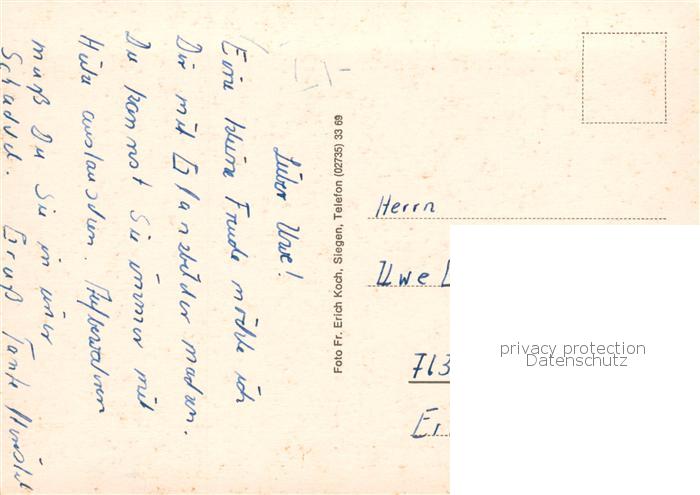 Lieber Uwe!
Eine kleine Freude möchte ich
Dir mit Glanzbilder machen.
Du kannst Sie immer mit
austauschen. Aufbewahren
muß Du Sie in einer
Schachtel. Gruß Tante
Foto Fr. Erich Koch, Siegen, Telefon (02735) 33 69
Herrn
Uwe
713
privacy protection
Datenschutz